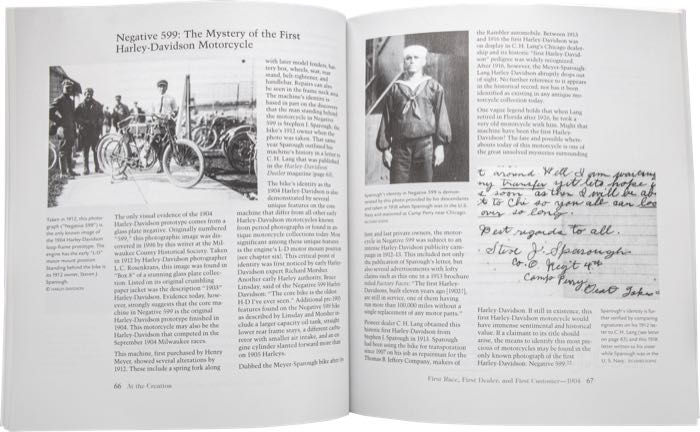 Negative 599: The Mystery of the First
Harley-Davidson Motorcycle
Taken in 1912, this photo-
graph ("Negative 599") is
the only known image of
the 1904 Harley-Davidson
loop-frame prototype. The
engine has the early "L-D"
motor mount position.
Standing behind the bike is
its 1912 owner, Steven J.
Sparough.
© HARLEY-DAVIDSON
The only visual evidence of the 1904
Harley-Davidson prototype comes from a
glass plate negative. Originally numbered
"599," this photographic image was dis-
covered in 1996 by this writer at the Mil-
waukee County Historical Society. Taken
in 1912 by Harley-Davidson photographer
L. C. Rosenkrans, this image was found in
"Box 8" of a stunning glass plate collec-
tion. Listed in its original crumbling
paper jacket was the description: "1903
Harley-Davidson. Evidence today, how-
ever, strongly suggests that the core ma-
chine in Negative 599 is the original
Harley-Davidson prototype finished in
1904. This motorcycle may also be the
Harley-Davidson that competed in the
September 1904 Milwaukee races.
This machine, first purchased by Henry
Meyer, showed several alterations by
1912. These include a spring fork along
with later model fenders, bat-
tery box, wheels, seat, rear
stand, belt tightener, and
handlebar. Repairs can also
be seen in the frame neck area.
The machine's identity is
based in part on the discovery
that the man standing behind
the motorcycle in Negative
599 is Stephen J. Sparough, the
bike's 1912 owner when the
photo was taken. That same
year Sparough outlined the
machine's history in a letter to
C. H. Lang that was published
in the Harley-Davidson
Dealer magazine (page 63).
The bike's identity as the
1904 Harley-Davidson is also
demonstrated by several
unique features on the one
machine that differ from all other early
Harley-Davidson motorcycles known
from period photographs or found in an-
tique motorcycle collections today. Most
significant among these unique features
is the engine's L-D motor mount position
(see chapter six). This critical point of
identity was first noticed by early Harley-
Davidson expert Richard Morshet.
Another early Harley authority, Bruce
Linsday, said of the Negative 599 Harley-
Davidson: "The core bike is the oldest
H-D I've ever seen." Additional pre-1905
features found on the Negative 599 bike
as described by Linsday and Morshet in-
clude a larger capacity oil tank, straight
lower rear frame stays, a different carbu-
retor with smaller air intake, and an en-
gine cylinder slanted forward more than
on 1905 Harleys.
Dubbed the Meyer-Sparough bike after its
66 At the Creation
Sparough's identity in Negative 599 is demon-
strated by this photo provided by his descendants
and taken in 1918 when Sparough was in the U.S.
Navy and stationed at Camp Perry near Chicago.
first and last private owners, the motor-
cycle in Negative 599 was subject to an
intense Harley-Davidson publicity cam-
paign in 1912-13. This included not only
the publication of Sparough's letter, but
also several advertisements with lofty
claims such as this one in a 1913 brochure
titled Factory Facts: "The first Harley-
Davidsons, built eleven years ago [1902!],
are still in service, one of them having
run more than 100,000 miles without a
single replacement of any motor parts."
Pioneer dealer C. H. Lang obtained this
historic first Harley-Davidson from
Stephen J. Sparough in 1913. Sparough
had been using the bike for transportation
since 1907 on his job as repairman for the
Thomas B. Jeffery Company, makers of
the Rambler automobile. Between 1913
and 1916 the first Harley-Davidson was
on display in C. H. Lang's Chicago dealer-
ship and its historic "first Harley-David-
son" pedigree was widely recognized.
After 1916, however, the Meyer-Sparough-
Lang Harley-Davidson abruptly drops out
of sight. No further reference to it appears
in the historical record, nor has it been
identified as existing in any antique mo-
torcycle collection today.
One vague legend holds that when Lang
retired in Florida after 1926, he took a
very old motorcycle with him. Might that
machine have been the first Harley-
Davidson? The fate and possible where-
abouts today of this motorcycle is one of
the great unsolved mysteries surrounding
t around. Well I am waiting
my transfer yet lets hope
soon as then I will be
to Chi so you all can
over so long.
Best regards to all.
Steve J. Sparough
Co. O Regt 4th
Camp Perry
Great Lakes
Harley-Davidson. If still in existence, this
first Harley-Davidson motorcycle would
have immense sentimental and historical
value. If a claimant to its title should
arise, the means to identify this most pre-
cious of motorcycles may be found in the
only known photograph of the first
Harley-Davidson: Negative 599.
Sparough's identity is fur-
ther verified by comparing
signatures on his 1912 let-
ter to C. H. Lang (see letter
on page 63) and this 1918
letter written to his sister
while Sparough was in the
U. S. Navy.
First Race, First Dealer, and First Customer—1904 67